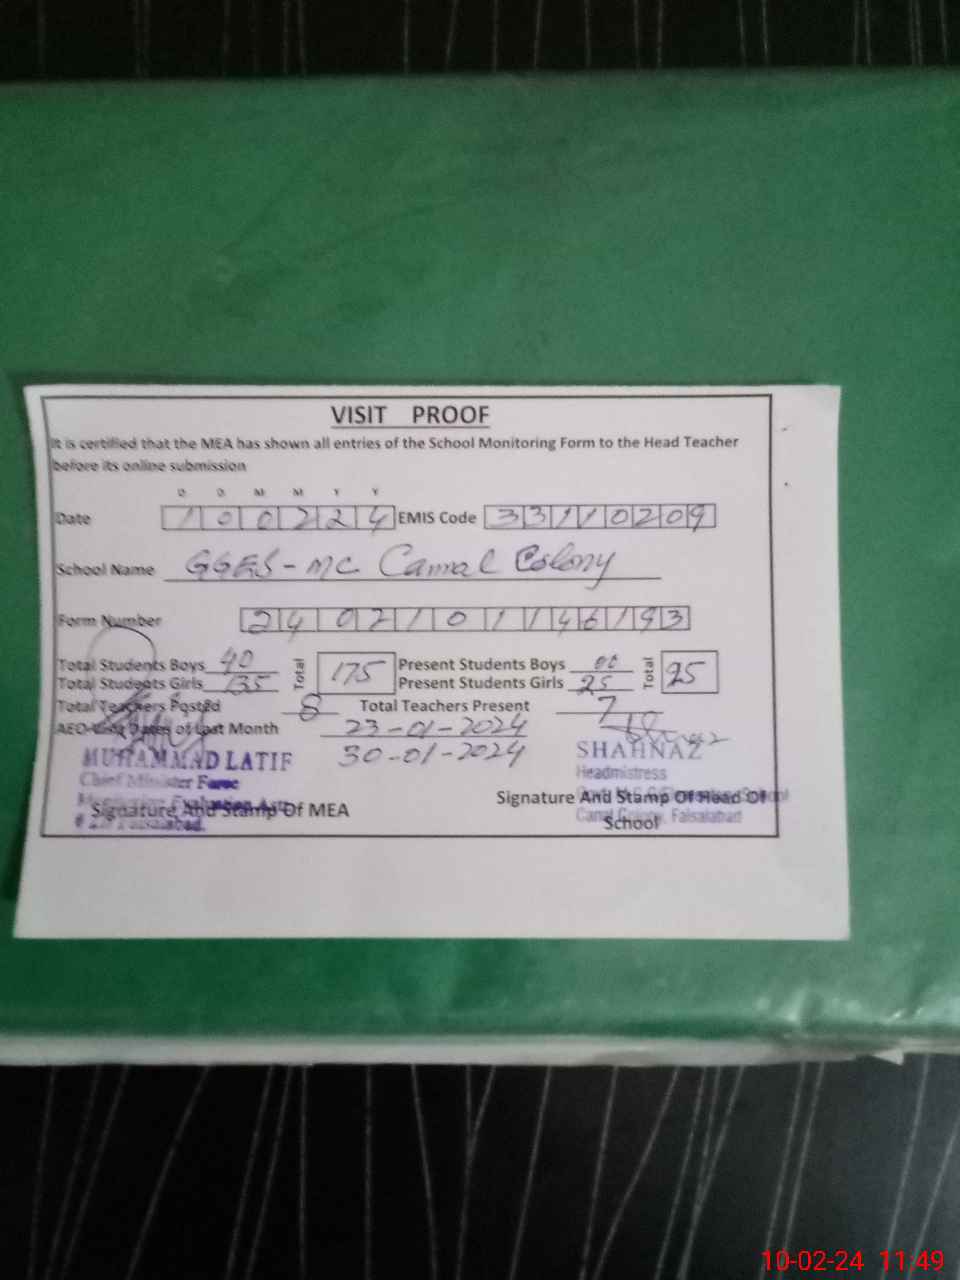 VISIT PROOF
It is certified that the MEA has shown all entries of the School Monitoring Form to the Head Teacher
before its online submission
D D M M Y Y
Date 100224 EMIS Code 33110209
School Name GGES-MC Camal Colony
Form Number 2402101146193
Total Students Boys 40 Total 175 Present Students Boys 00 Total 25
Total Students Girls 135 Present Students Girls 25
Total Teachers Posted 8 Total Teachers Present 7
AEO Visit Dates of Last Month 23-01-2024
30-01-2024
MUHAMMAD LATIF
Chief Minister Force
Faisalabad.
Signature And Stamp Of MEA
SHAHNAZ
Headmistress
School
Canal Colony, Faisalabad
Signature And Stamp Of Head Of
School
10-02-24 11:49